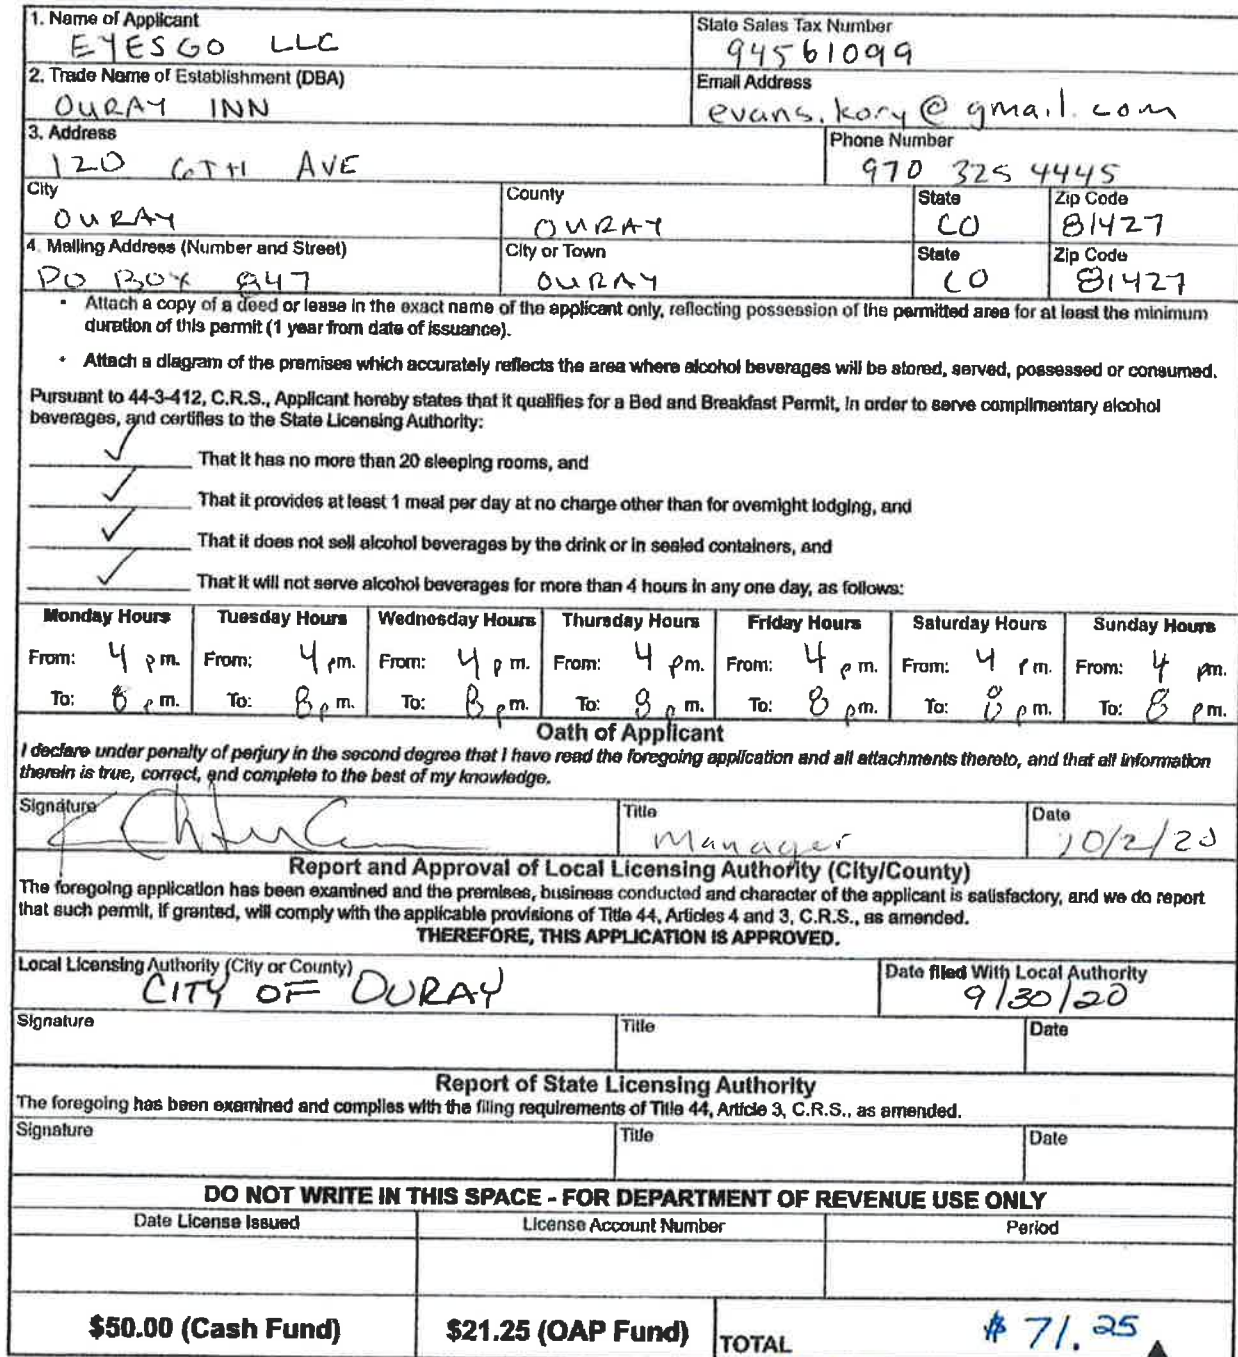 1. Name of Applicant
EYESGO LLC
State Sales Tax Number
94561099
2. Trade Name of Establishment (DBA)
OURAY INN
Email Address
evans.kory@gmail.com
3. Address
120 6TH AVE
Phone Number
970 325 4445
City
OURAY
County
OURAY
State
CO
Zip Code
81427
4. Mailing Address (Number and Street)
PO BOX 947
City or Town
OURAY
State
CO
Zip Code
81427
• Attach a copy of a deed or lease in the exact name of the applicant only, reflecting possession of the permitted area for at least the minimum
duration of this permit (1 year from date of issuance).
• Attach a diagram of the premises which accurately reflects the area where alcohol beverages will be stored, served, possessed or consumed.
Pursuant to 44-3-412, C.R.S., Applicant hereby states that it qualifies for a Bed and Breakfast Permit, in order to serve complimentary alcohol
beverages, and certifies to the State Licensing Authority:
✓ That it has no more than 20 sleeping rooms, and
✓ That it provides at least 1 meal per day at no charge other than for overnight lodging, and
✓ That it does not sell alcohol beverages by the drink or in sealed containers, and
✓ That it will not serve alcohol beverages for more than 4 hours in any one day, as follows:
Monday Hours Tuesday Hours Wednesday Hours Thursday Hours Friday Hours Saturday Hours Sunday Hours
From: 4 pm. From: 4 pm. From: 4 pm. From: 4 pm. From: 4 pm. From: 4 pm. From: 4 pm.
To: 8 pm. To: 8 pm. To: 8 pm. To: 8 pm. To: 8 pm. To: 8 pm. To: 8 pm.
Oath of Applicant
I declare under penalty of perjury in the second degree that I have read the foregoing application and all attachments thereto, and that all information
therein is true, correct, and complete to the best of my knowledge.
Signature
Title
Manager
Date
10/2/20
Report and Approval of Local Licensing Authority (City/County)
The foregoing application has been examined and the premises, business conducted and character of the applicant is satisfactory, and we do report
that such permit, if granted, will comply with the applicable provisions of Title 44, Articles 4 and 3, C.R.S., as amended.
THEREFORE, THIS APPLICATION IS APPROVED.
Local Licensing Authority (City or County)
CITY OF OURAY
Date filed With Local Authority
9/30/20
Signature Title Date
Report of State Licensing Authority
The foregoing has been examined and complies with the filing requirements of Title 44, Article 3, C.R.S., as amended.
Signature Title Date
DO NOT WRITE IN THIS SPACE - FOR DEPARTMENT OF REVENUE USE ONLY
Date License Issued License Account Number Period
$50.00 (Cash Fund) $21.25 (OAP Fund) TOTAL $71.25